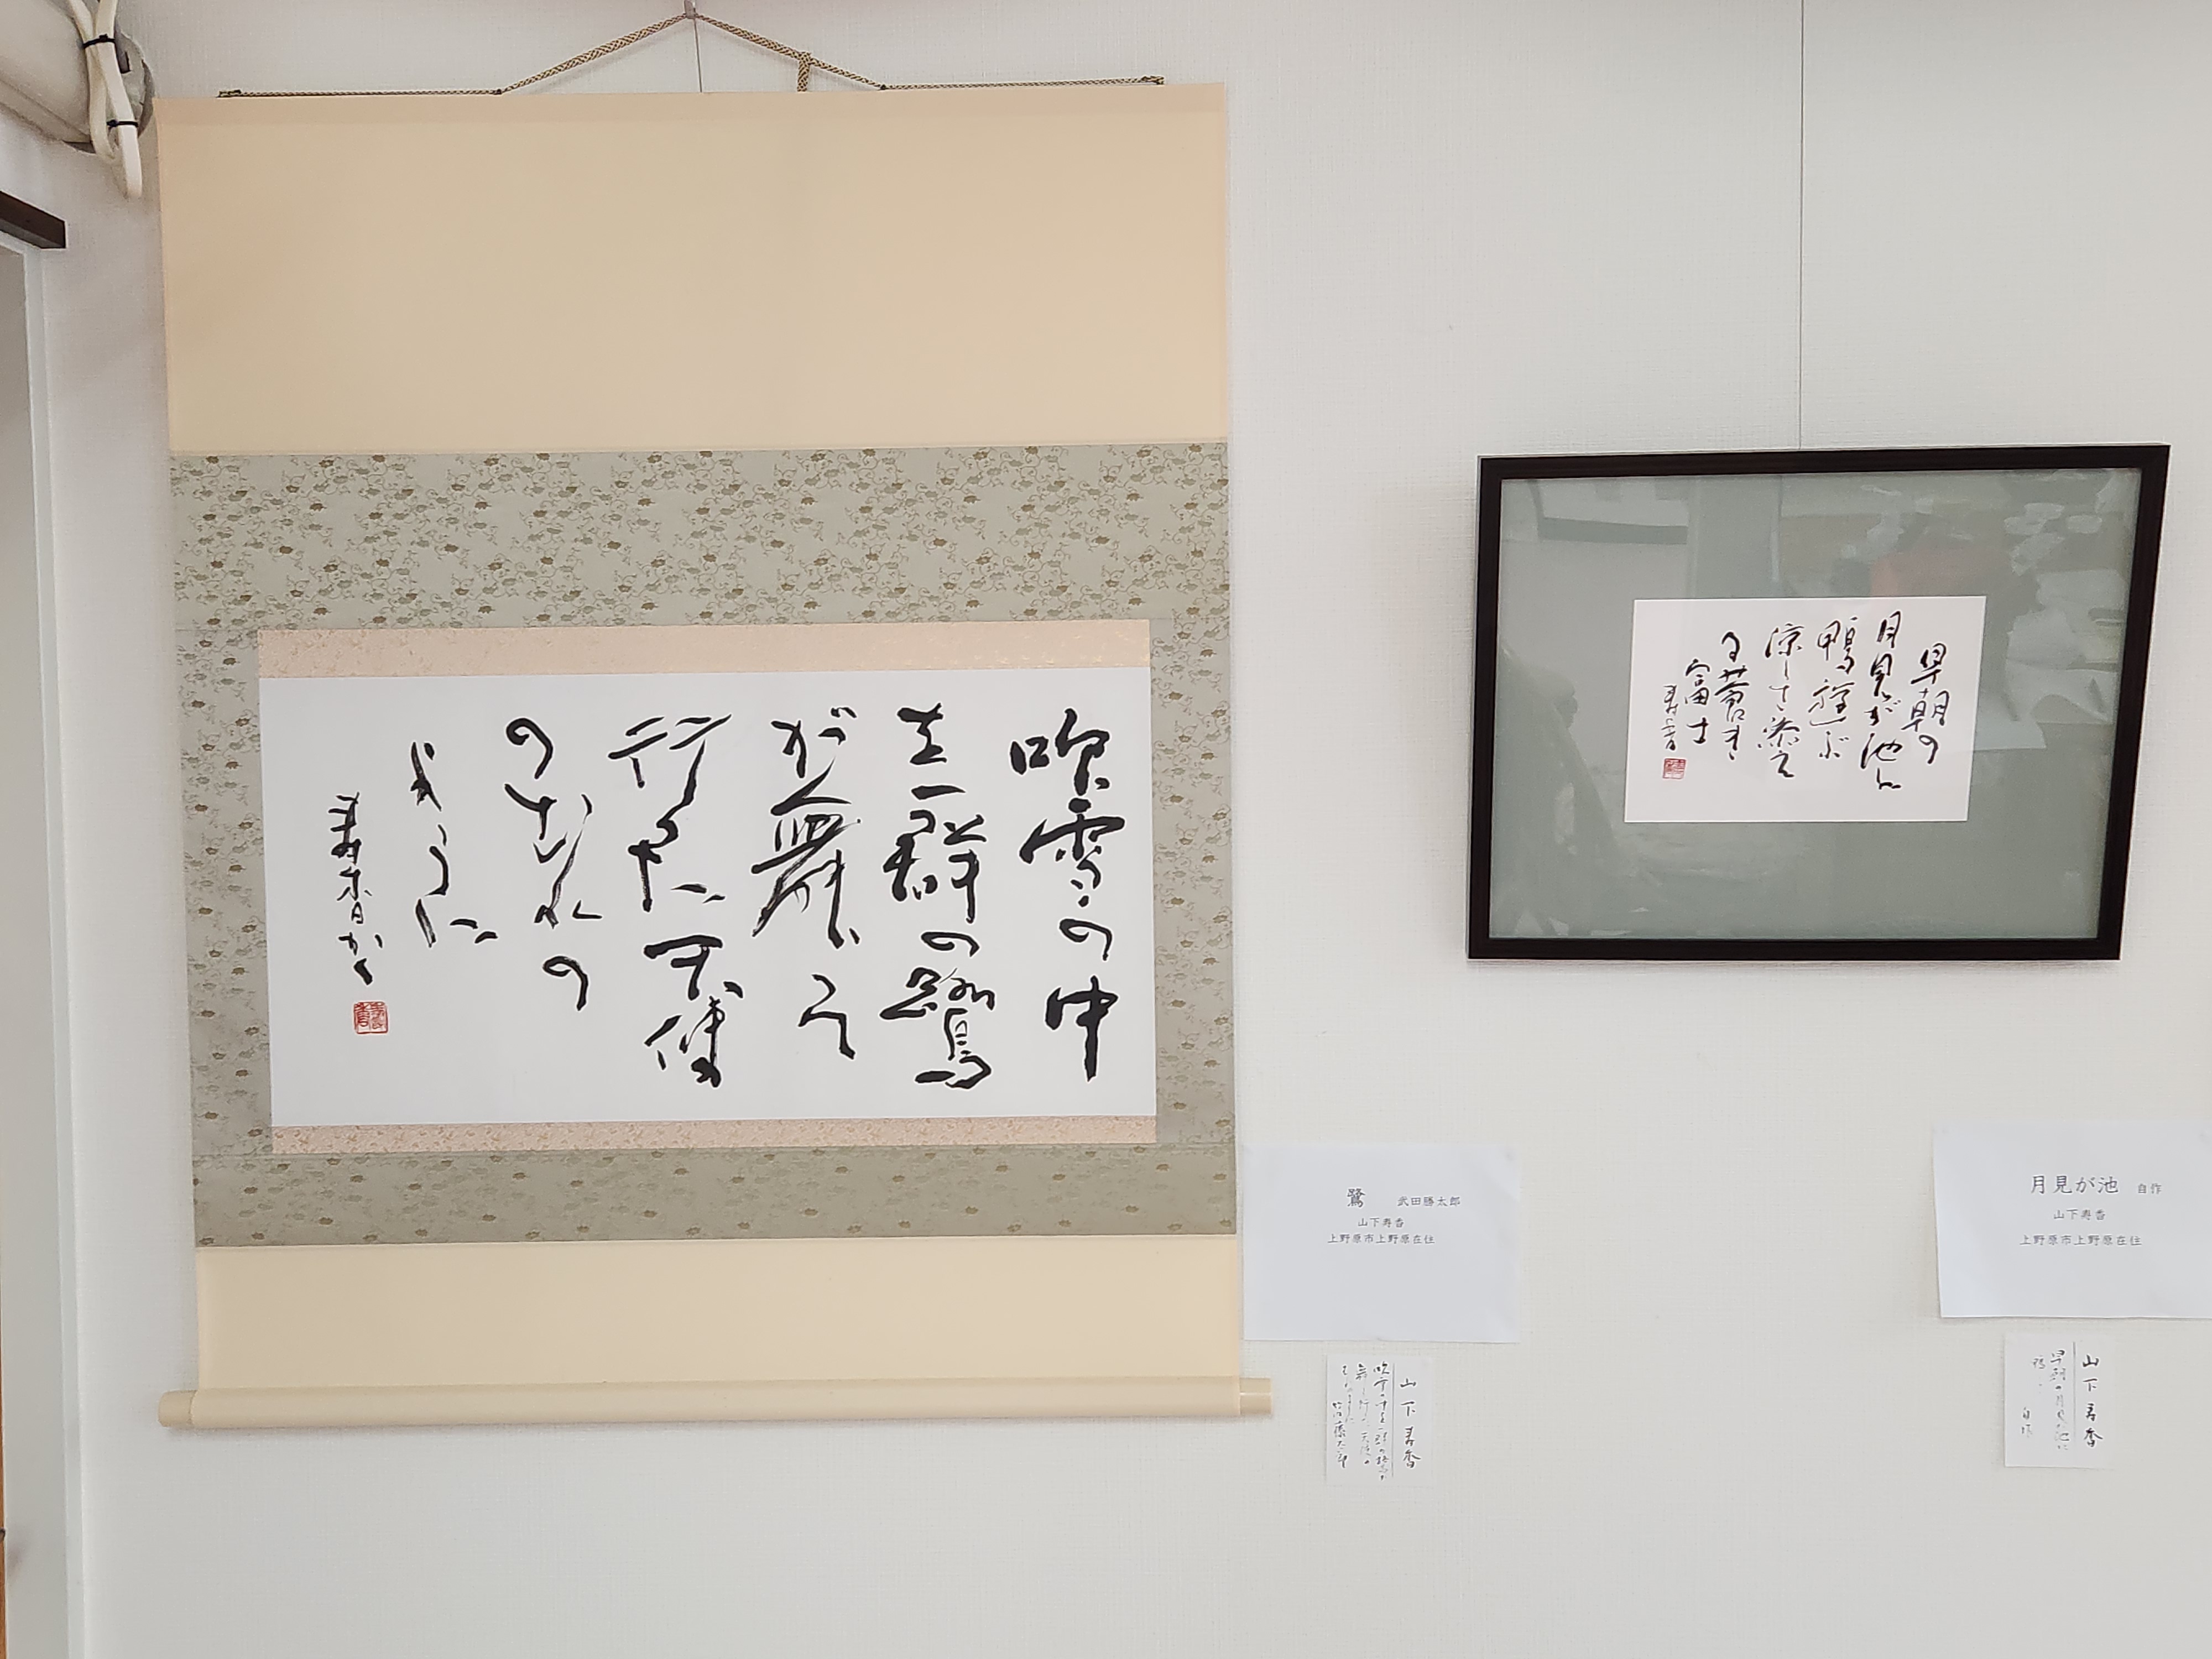 吹雪の中
を一群の鷺
が舞って
行った天使
のむれの
ように
寿香かく
早朝の
月見が池に
鴨遊ぶ
涼しさ添え
る蒼き
富士
寿香
鷺 武田勝太郎
山下寿香
上野原市上野原在住
月見が池 自作
山下寿香
上野原市上野原在住
山下寿香
山下寿香
早朝の月見が池に